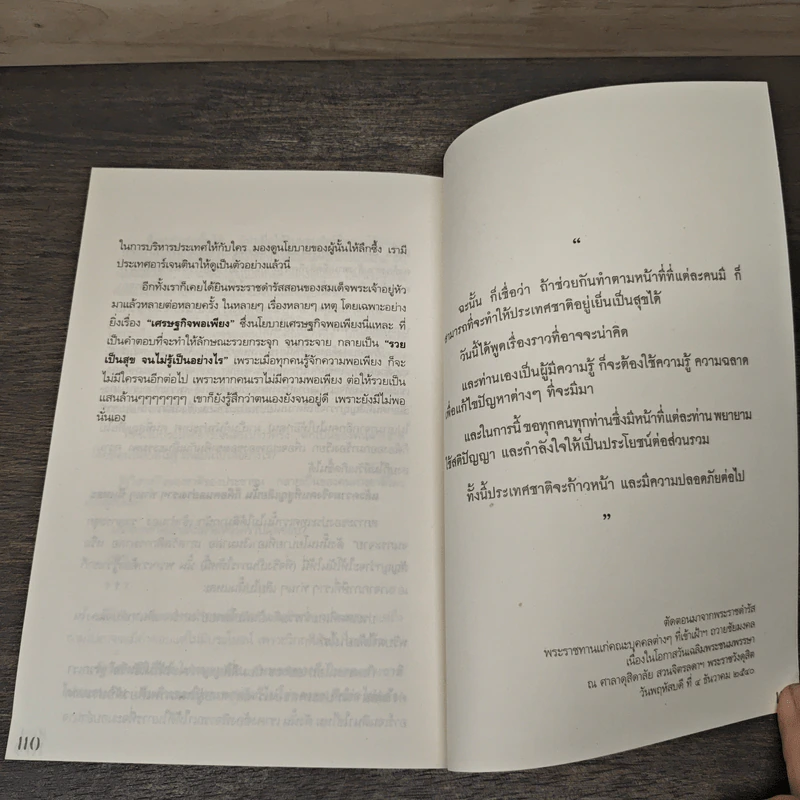 ในการบริหารประเทศให้กับใคร มองดูนโยบายของผู้นั้นให้ลึกซึ้ง เรามี
ประเทศอาร์เจนตินาให้ดูเป็นตัวอย่างแล้วนี่
อีกทั้งเราก็เคยได้ยินพระราชดำรัสสอนของสมเด็จพระเจ้าอยู่หัว
มาแล้วหลายต่อหลายครั้ง ในหลายๆ เรื่องหลายๆ เหตุ โดยเฉพาะอย่าง
ยิ่งเรื่อง "เศรษฐกิจพอเพียง" ซึ่งนโยบายเศรษฐกิจพอเพียงนี่แหละ ที่
เป็นคำตอบที่จะทำให้ลักษณะรวยกระจุก จนกระจาย กลายเป็น "รวย
เป็นสุข จนไม่รู้เป็นอย่างไร" เพราะเมื่อทุกคนรู้จักความพอเพียง ก็จะ
ไม่มีใครจนอีกต่อไป เพราะหากคนเราไม่มีความพอเพียง ต่อให้รวยเป็น
แสนล้านๆๆๆๆๆๆๆ เขาก็ยังรู้สึกว่าตนเองยังจนอยู่ดี เพราะยังมีไม่พอ
นั่นเอง
110
“
ฉะนั้น ก็เชื่อว่า ถ้าช่วยกันทำตามหน้าที่ที่แต่ละคนมี ก็
สามารถที่จะทำให้ประเทศชาติอยู่เย็นเป็นสุขได้
วันนี้ได้พูดเรื่องราวที่อาจจะน่าคิด
และท่านเองเป็นผู้มีความรู้ ก็จะต้องใช้ความรู้ ความฉลาด
เพื่อแก้ไขปัญหาต่างๆ ที่จะมีมา
และในการนี้ ขอทุกคนทุกท่านซึ่งมีหน้าที่แต่ละท่าน พยายาม
ใช้สติปัญญา และกำลังใจให้เป็นประโยชน์ต่อส่วนรวม
ทั้งนี้ประเทศชาติจะก้าวหน้า และมีความปลอดภัยต่อไป
”
ตัดตอนมาจากพระราชดำรัส
พระราชทานแก่คณะบุคคลต่างๆ ที่เข้าเฝ้าฯ ถวายชัยมงคล
เนื่องในโอกาสวันเฉลิมพระชนมพรรษา
ณ ศาลาดุสิดาลัย สวนจิตรลดาฯ พระราชวังดุสิต
วันพฤหัสบดี ที่ ๔ ธันวาคม ๒๕๔๐